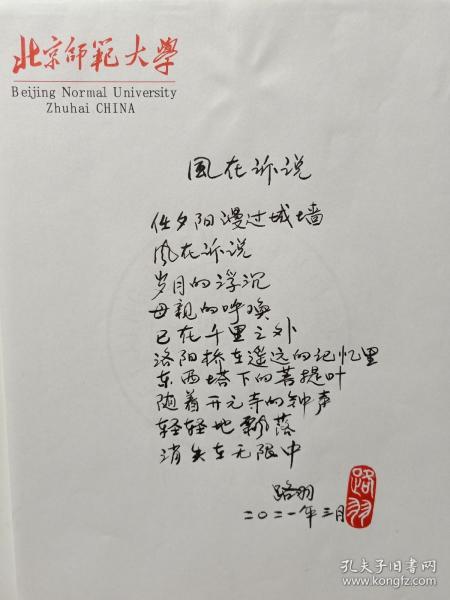 北京师范大学
Beijing Normal University
Zhuhai CHINA
風在诉说
任夕阳漫过城墙
风在诉说
岁月的浮沉
母親的呼唤
已在千里之外
洛阳桥在遥远的记忆里
东西塔下的菩提叶
随着开元寺的钟声
轻轻地飘落
消失在无限中
路羽
二〇二一年三月
路羽
孔夫子旧书网
www.kongfz.com